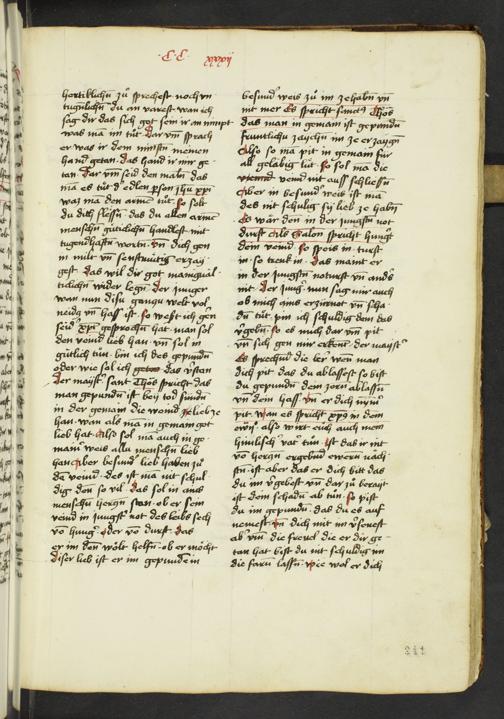 CC lxxxix
hertiklichn zů sprechest noch vn
tugnlichn du an varest wan ich
sag dir das sich got sein ir an nimpt
was mā im tůt Dar vm̄ sprach
er was ir dem minstn meinen
hand getan das hand ir mir ge-
tan Dar vm̄ seid den maln das
mā es tůt d̄ edlen pson jhū xpi
waz mā den armē tůt So solt
du dich flessn das du allen armē
menschn gütichn handlest mit
tugendhaftn wortn vn̄ dich gen
in milt vn̄
gest Das wil dir got
wider legn Der junger
wan nun disū gantzū welt vol
neid vn̄ hass ist So west ich gern
seid xps gesprochn hat man sol
den veind lieb han vn̄ sol in
gütlich tůn bin ich des gepundn
oder wie sol ich das v̄stan
Der maist̄ sant Thōs spricht das
man gepundn ist bey tod sundn
in der gemain die veind zelieb ze
han wan als mā in gemain got
lieb hat Also sol mā auch in ge-
main weis alln menschn lieb
han Aber besundr lieb haben zů
dn veind des ist mā nit schul
dig den so vil das sol in ains
menschn hertzn stan ob er sein
veind in jungst not des leibs sech
vō hung oder vō durst das
er im dan wölt helfn ob er möcht
diser lieb ist er im gepunden in
besundr weis zů im zehabn vn̄
nit mer Es spricht sanct Thōs
das man in gemain ist gepundn
fruntlichn zaichn im ze erzaign
Also so mā pit in gemain für
all gelabig lüt So sol mā die
veind nit auss schliessn
Aber in besundr weis ist mā
des nit schulig sy lieb ze habn
Es wär den in der jungstn not
durft Als Salon spricht hungt
dein veind So speis in turst
in so trenk in Das maint er
in der jungstn noturft vn̄ ands̄
nit Der jung nun sag mir auch
ob mich ains erzürnet vn̄ scha-
dn̄ tůt pin ich schuldig dem das
v̄gebn So es mich dar vm̄ pit
vn̄ sich gen mir erkent der maist̄
Es sprechnd die ler wen man
dich pit das du ablassest so bist
du gepundn dein zorn ablassn
vn̄ dem hass Vn̄ er dich
pit Wan es spricht xps in dem
ewn̄ also wirt euch auch mein
himlisch vat̄ tůn Ist das ir nit
vō hertzn ergebnd ewern näch-
stn ist aber das er dich bit das
du im v̄gebest vn̄ dar zů beraijt
ist dein schadn ab tůn So pist
du im gepundn das du es auf
nemest Vn̄ dich mit im v̄sönest
ab vm̄ die frevel die er dir ge-
tan hat bist du nit schuldig im
die farn lassn wie wol er dich
241